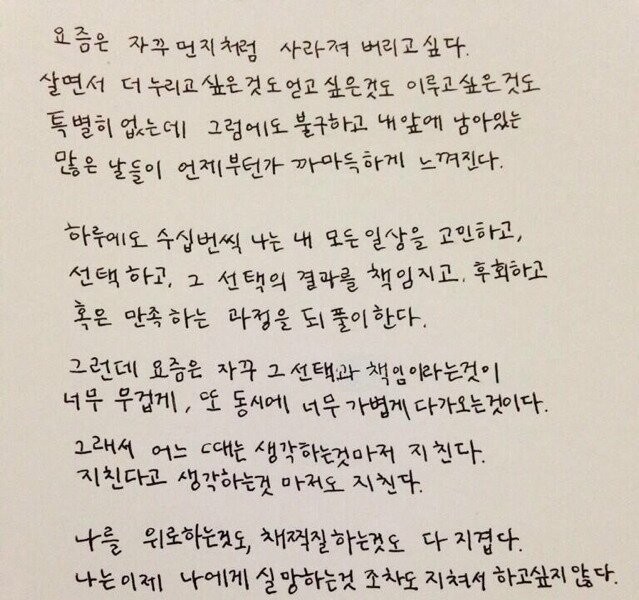 요즘은 자꾸 먼지처럼 사라져 버리고 싶다.
살면서 더 누리고 싶은것도 얻고 싶은것도 이루고 싶은것도
특별히 없는데 그럼에도 불구하고 내 앞에 남아있는
많은 날들이 언제부턴가 까마득하게 느껴진다.
하루에도 수십번씩 나는 내 모든 일상을 고민하고,
선택하고, 그 선택의 결과를 책임지고, 후회하고
혹은 만족하는 과정을 되풀이한다.
그런데 요즘은 자꾸 그 선택과 책임이라는것이
너무 무겁게, 또 동시에 너무 가볍게 다가오는것이다.
그래서 어느 때는 생각하는것마저 지친다.
지친다고 생각하는것 마저도 지친다.
나를 위로하는것도, 채찍질하는것도 다 지겹다.
나는 이제 나에게 실망하는것 조차도 지쳐서 하고싶지 않다.